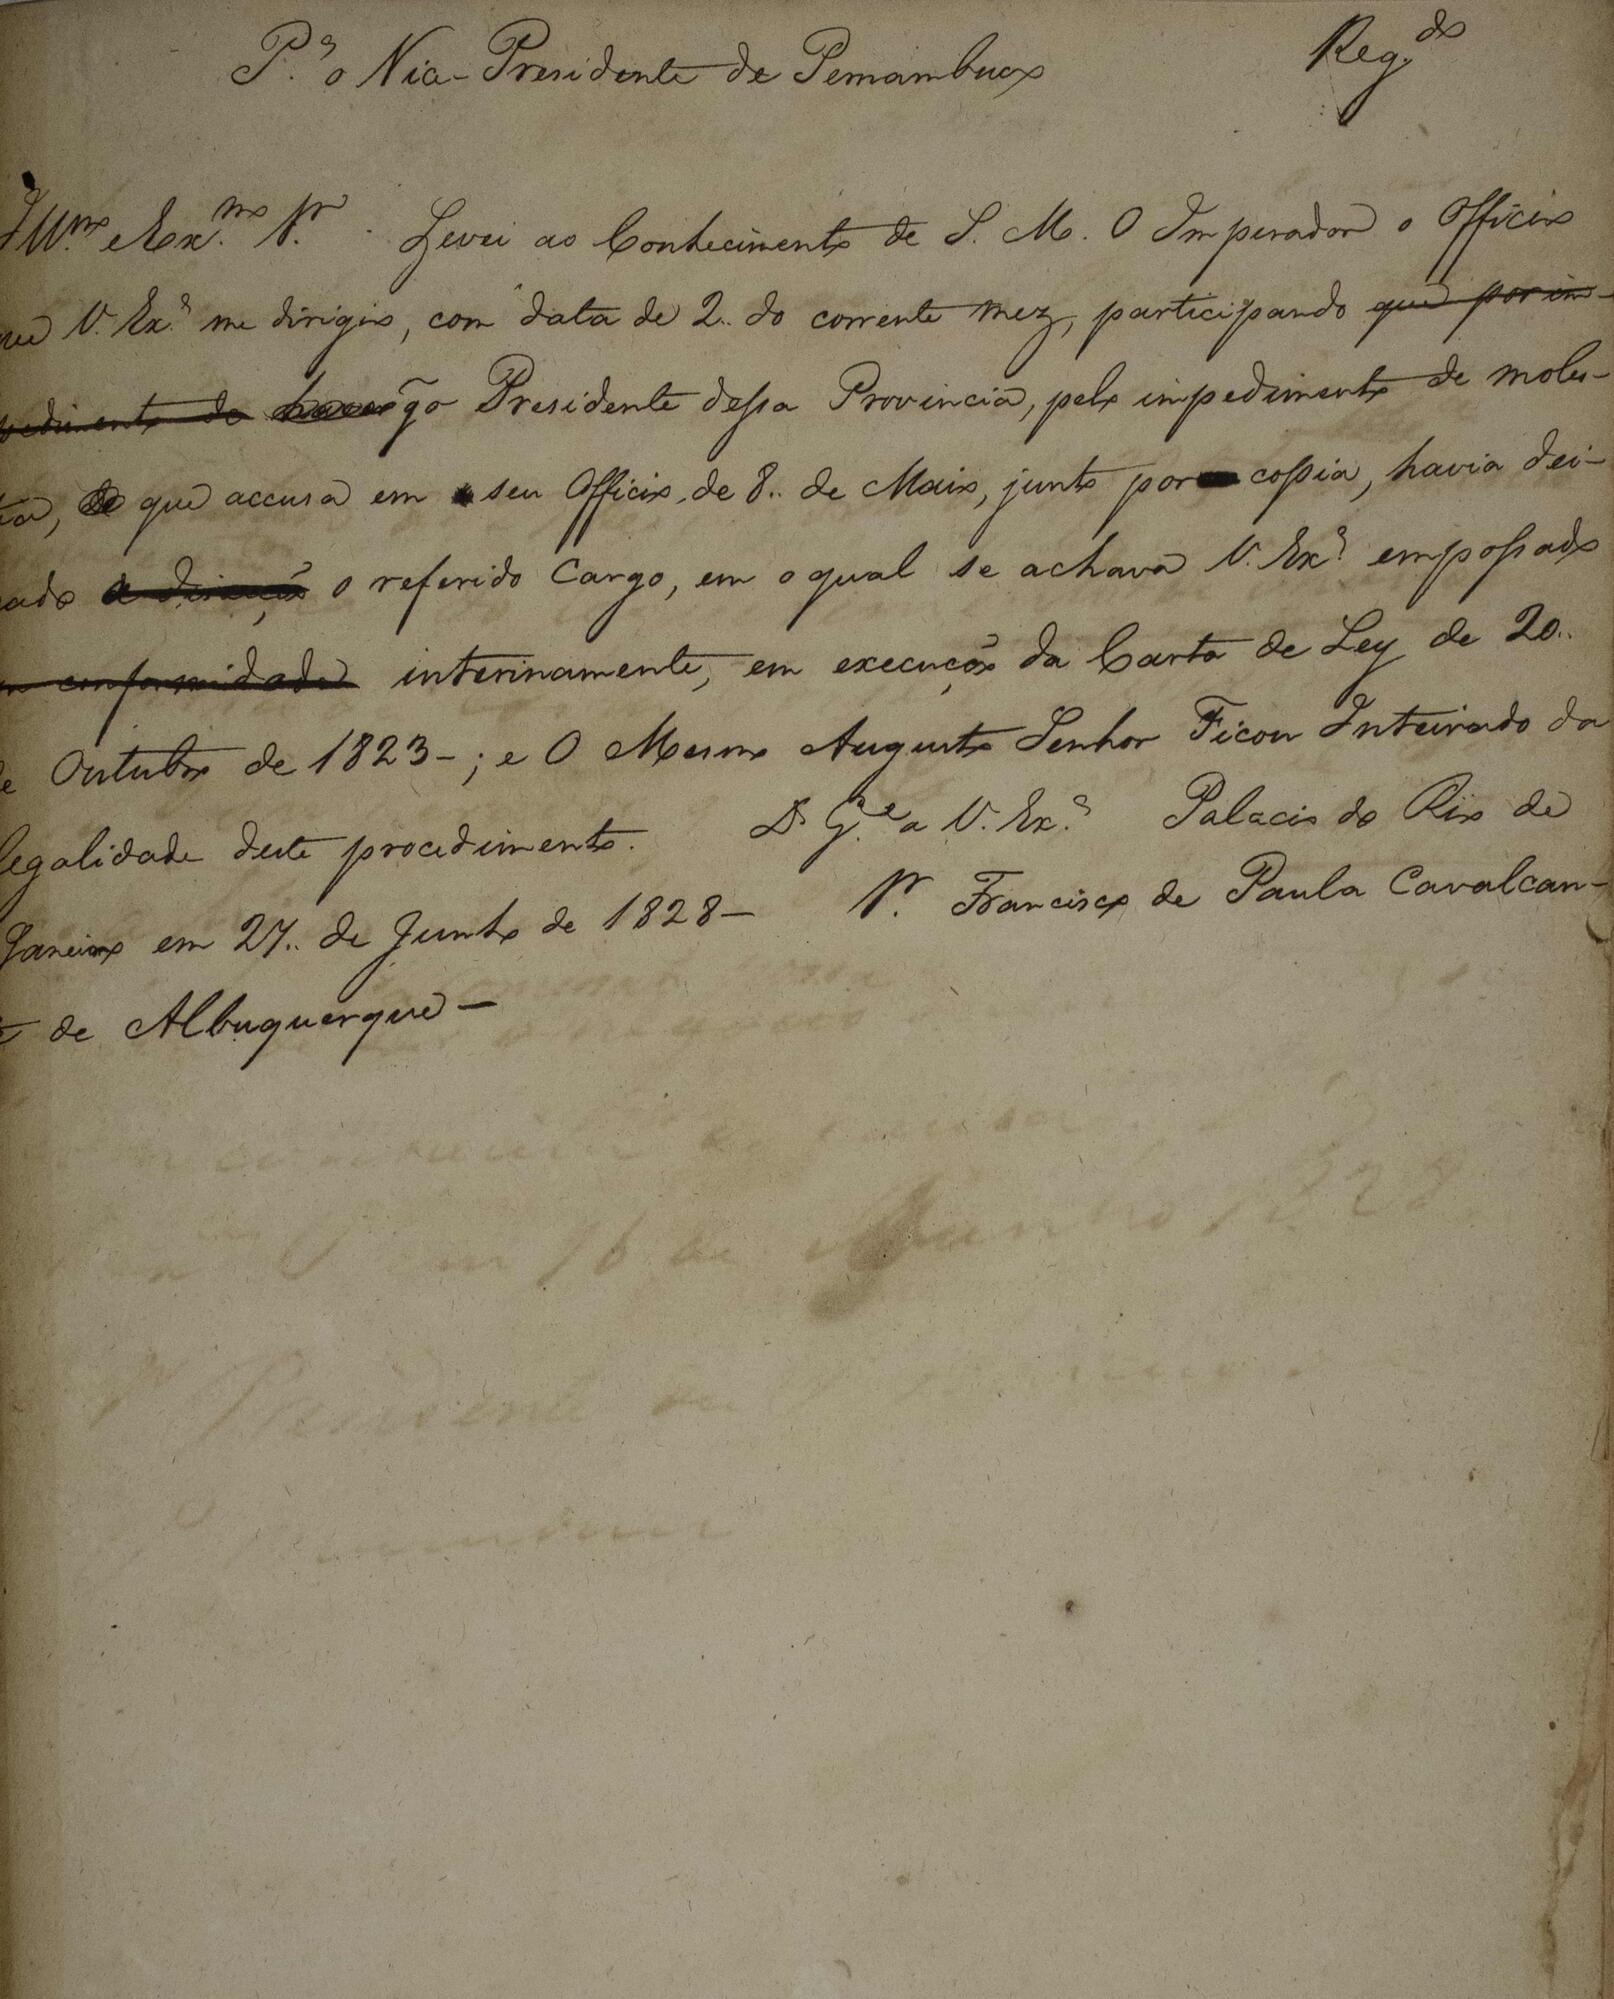 P.ª o Vice-Presidente de Pernambuco
Reg.do
Ill.mo e Ex.mo S.r Levei ao Conhecimento de S. M. O Imperador o Officio
que V. Ex.ª me dirigio, com data de 2.. do corrente mez, participando que por im-
pedimento de haver q̃ o Presidente dessa Provincia, pelo impedimento de moles-
tia, de que accusa em seu Officio, de 8.. de Maio, junto por copia, havia dei-
xado a direcção o referido Cargo, em o qual se achava V. Ex.ª empossado
em conformidade interinamente, em execução da Carta de Ley de 20..
de Outubro de 1823-; e O Mesmo Augusto Senhor Ficou Inteirado da
legalidade deste procedimento. D.s G.e a V. Ex.ª Palacio do Rio de
Janeiro em 27.. de Junho de 1828- S.r Francisco de Paula Cavalcan-
te de Albuquerque-